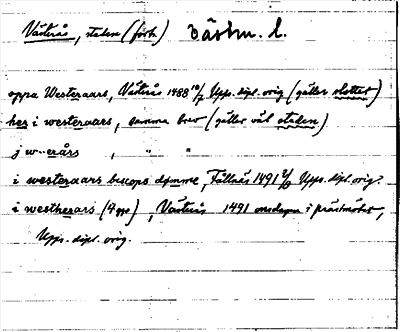 Västerås, staden (forts.) Västm. l.
oppa Westeraars, Västerås 1488 10/7 Upps. dipl. orig (gäller slottet)
her i westeraars, samma brev (gäller väl staden.)
j w--erårs , " "
i westeraars biscops dømme, 1491 Upps. dipl. orig.
i westherars (4 ggr), Västerås 1491 onsdagen i prästmötet,
Upps. dipl. orig.